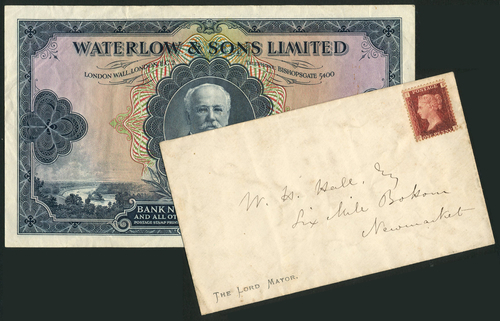 WATERLOW & SONS LIMITED
LONDON WALL, LONDON, E.C.2.
BISHOPSGATE 5400
BANK N
AND ALL OT
POSTAGE STAMP PRO
POSTAGE
W. H. Hall, Esq
Six Mile Bottom
Newmarket
THE LORD MAYOR.